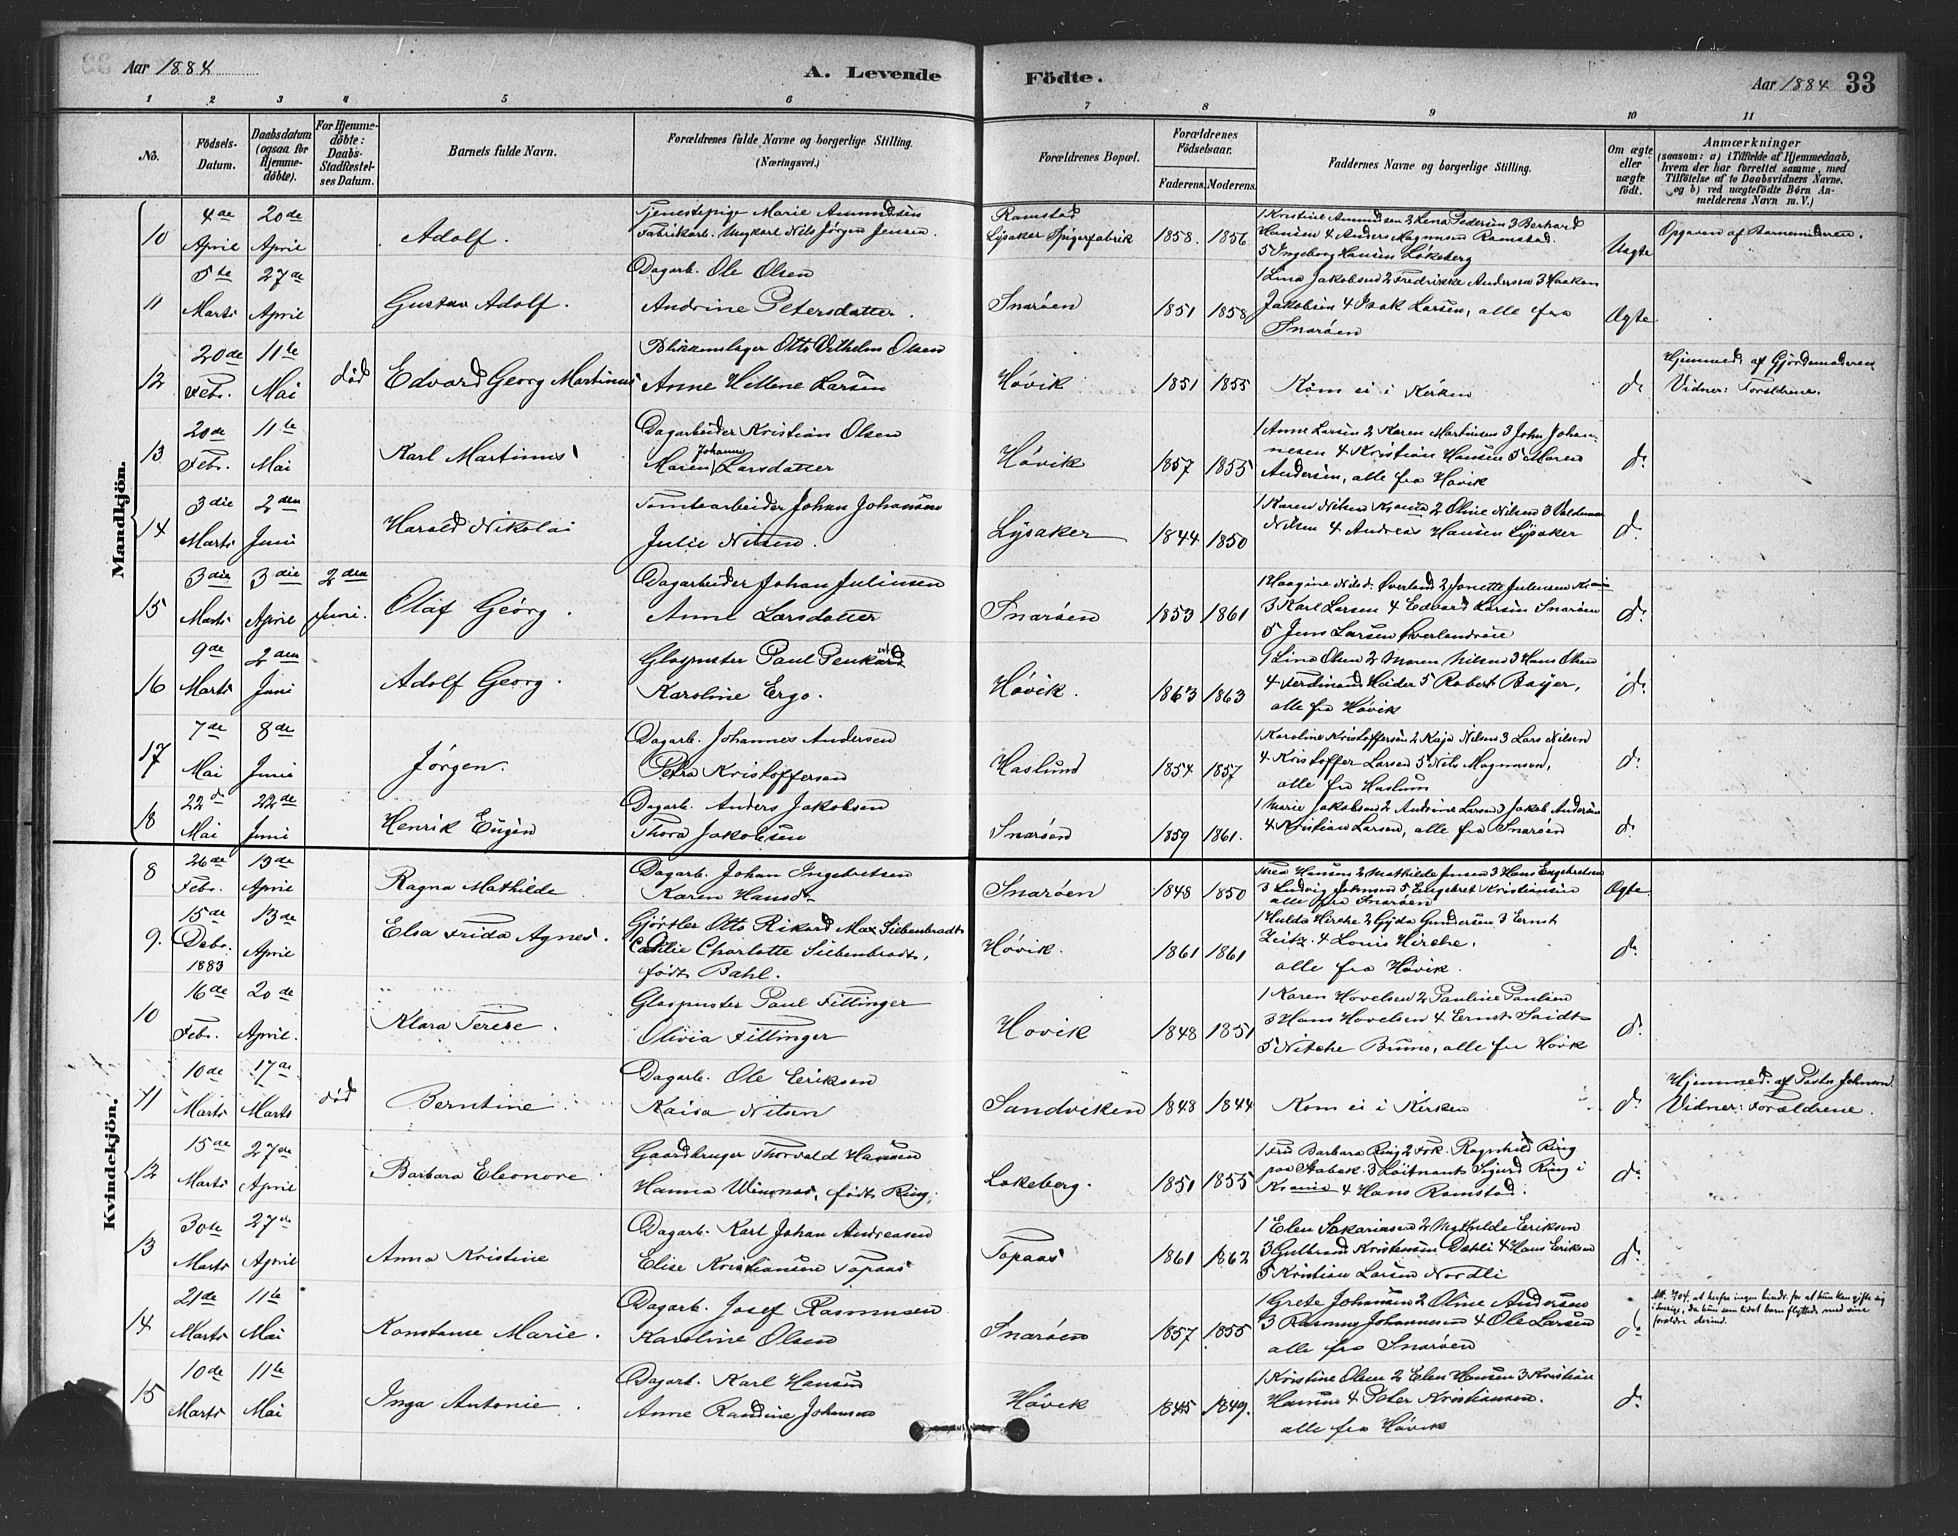 Aar 1884
A. Levende
Födte.
Aar 1884 33
1 2 3 4 5 6 7 8 9 10 11
No.
Födsels-Datum.
Daabsdatum (ogsaa for Hjemme-döbte).
For Hjemme-döbte: Daabs-Stadfæstel-ses Datum.
Barnets fulde Navn.
Forældrenes fulde Navne og borgerlige Stilling. (Næringsvei.)
Forældrenes Bopæl.
Forældrenes Födselsaar.
Faderens. Moderens.
Faddernes Navne og borgerlige Stilling.
Om ægte eller uægte födt.
Anmærkninger
(saasom: a) i Tilfælde af Hjemmedaab,
hvem der har forrettet samme, med
Tilföielse af to Daabsvidners Navne.
og b) ved uægtefödte Börn An-
melderens Navn m. V.)
Mandkjön.
10 4de April 20de April Adolf. Tjenestepige Marie Amundsen
Fabrikarb. Ungkarl Nils Jørgen Jensen.
Ramstad
Lysaker Spigerfabrik 1858. 1856
1 Kristine Amundsen 2 Lena Pedersen 3 Berhard
Hansen 4 Anders Magnusen Ramstad.
5 Ingeborg Hansen Løkeberg
Uægte
Opgaven af Barnemoderen.
11 5te Marts 27de April Gustav Adolf. Dagarb. Ole Olsen
Andrine Petersdatter.
Snarøen 1851 1858
1 Lina Jakobsen 2 Fredrikke Andersen 3 Haaken
Jakobsen 4 Isak Larsen, alle fra
Snarøen
Ægte
12 20de Febr. 11te Mai død Edvard Georg Martinus Blikkenslager Otto Vilhelm Olsen
Anne Hellene Larsen
Høvik 1851 1855
Kom ei i Kirken
do
Hjemmed. af Gjordemoderen
Vidner: Forældrene.
13 20de Febr. 11te Mai Karl Martinus Dagarbeider Kristian Olsen
Johanne
Maren Larsdatter
Høvik 1857 1855
1 Anne Larsen 2 Karen Martinsen 3 John Johan-
nesen 4 Kristian Hansen 5 Maren
Andersen, alle fra Høvik
do
14 3die Marts 2den Juni Harald Nikolai Tomtearbeider Johan Johansen
Julie Nilsen.
Lysaker 1844 1850
1 Karen Nilsen Krania 2 Oline Nilsen 3 Valdemar
Nilsen 4 Andreas Hansen Lysaker
do
15 3die Marts 3die April 2den Juni. Olaf Georg. Dagarbeider Johan Juliusen
Anne Larsdatter
Snarøen 1853 1861
1 Haagine Nilsd. Øverland 2 Janette Juliussen Krania
3 Karl Larsen 4 Edvard Larsen Snarøen
5 Jens Larsen Øverlandseie
do
16 9de Marts 2den Juni Adolf Georg. Glaspuster Paul
Karoline Ergo.
Høvik. 1863 1863
1 Lina Olsen 2 Maren Nilsen 3 Hans Olsen
4 Ferdinand Heider 5 Robert Baijer,
alle fra Høvik
do
17 7de Mai 8de Juni Jørgen. Dagarb. Johannes Andersen
Petra Kristoffersen
Haslund 1854 1857
1 Karoline Kristoffersen 2 Kaja Nilsen 3 Lars Nilsen
4 Kristoffer Larsen 5 Nils Magnusen,
alle fra Haslum
do
18 22de Mai 22de Juni Henrik Eugen Dagarb. Anders Jakobsen
Thora Jakobsen
Snarøen 1859 1861.
1 Marie Jakobsen 2 Andrine Larsen 3 Jakob Andersen
4 Kristian Larsen, alle fra Snarøen
do
Kvindekjön.
8 26de Febr. 13de April Ragna Mathilde Dagarb. Johan Ingebretsen
Karen Hansdr
Snarøen 1848 1850
Hansen 2 Mathilde Jensen 3 Hans Engebretsen
3 Ludvig Johnsen 5 Engebret Kristiansen
alle fra Snarøen
Ægte
9. 15de Debr. 1883 13de April Elsa Frida Agnes. Gjørtler Otto Rikard Max Siebenbradt
Charlotte Siebenbradt,
født Bahl.
Høvik. 1861 1861
1 Hulda Hirche 2 Gyda Gundersen 3 Ernst
Zeitz. 4 Louis Hirche.
alle fra Høvik.
do
10 16de Febr. 20de April. Klara Terese. Glaspuster Paul Fillinger
Olivia Fillinger
Høvik 1848 1851
1 Karen Hovelsen 2 Pauline Paulsen
3 Hans Hovelsen 4 Ernst Saidt
5 Nitche Bruno, alle fra Høvik
do
11 10de Marts 17de Marts død Berntine Dagarb. Ole Eriksen
Kaisa Nilsen
Sandviken 1848 1844
Kom ei i Kirken
do
Hjemmed. af Pastor Johnson
Vidner: Forældrene.
12 15de Marts 27de April Barbara Eleonore. Gaardbruger Thorvald Hansen
Hanna født Ring.
Løkeberg. 1851 1855
1 Fru Barbara Ring 2 Frk. Ragnhild Ring
paa Stabæk. 3 Løitnant Sigurd Ring i
Krania 4 Hans Ramstad.
do
13 30te Marts 27de April Anna Kristine Dagarb. Karl Johan Andreasen
Elise Kristiansen Topaas
Topaas 1861 1862
1 Elen Sakariasen 2 Mathilde Eriksen
3 Gulbrand Kristensen Dæhli 4 Hans Eriksen
5 Kristian Larsen Nordli
do
14 21de Marts 11te Mai Konstanse Marie. Dagarb. Josef Rasmussen
Karoline Olsen
Snarøen 1857 1855
1 Grete Johansen 2 Oline Andersen
3 Rasmus Johannesen 4 Ole Larsen
alle fra Snarøen
do
Att. 7/04. at herfra ingen hindr. for at hun kan gifte sig
i Sverige, da hun som lidet barn flyttede med sine
forældre derind.
15 10de Marts 11te Mai Inga Antonie. Dagarb. Karl Hansen
Anne Randine Johnsen
Høvik 1845 1849.
1 Kristine Olsen 2 Elen Hansen 3 Kristian
Hansen 4 Peter Kristiansen.
alle fra Høvik
do